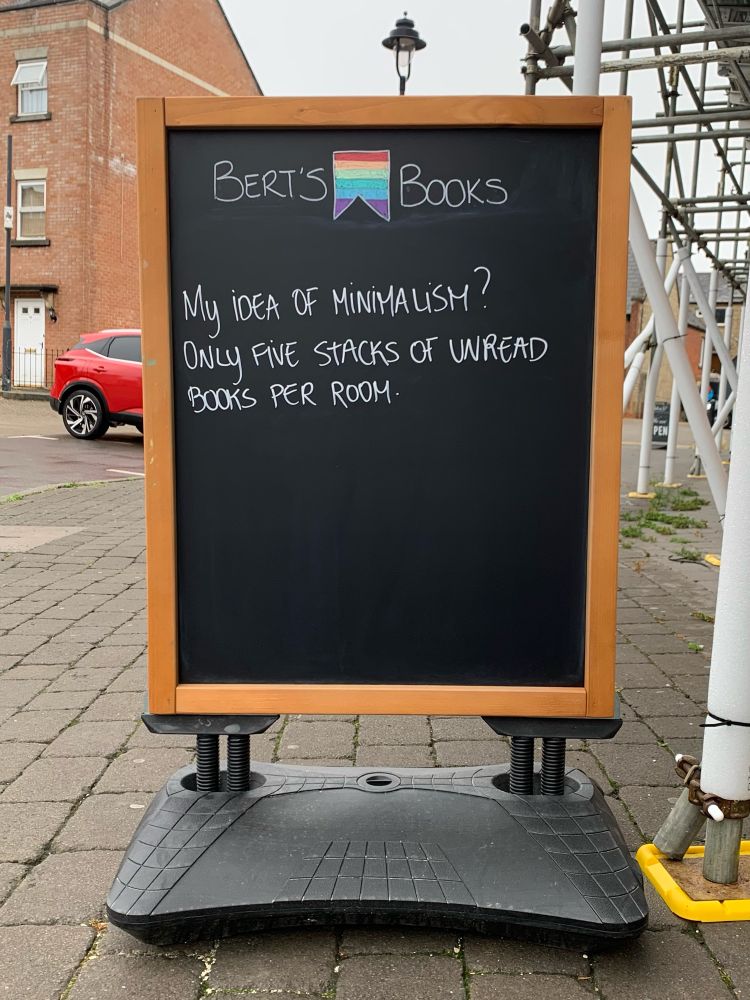 BERT'S BOOKS
My iDEA OF MiNiMALiSM?
ONLy FiVE STACKS OF UNREAD
BOOKS PER ROOM.
PEN